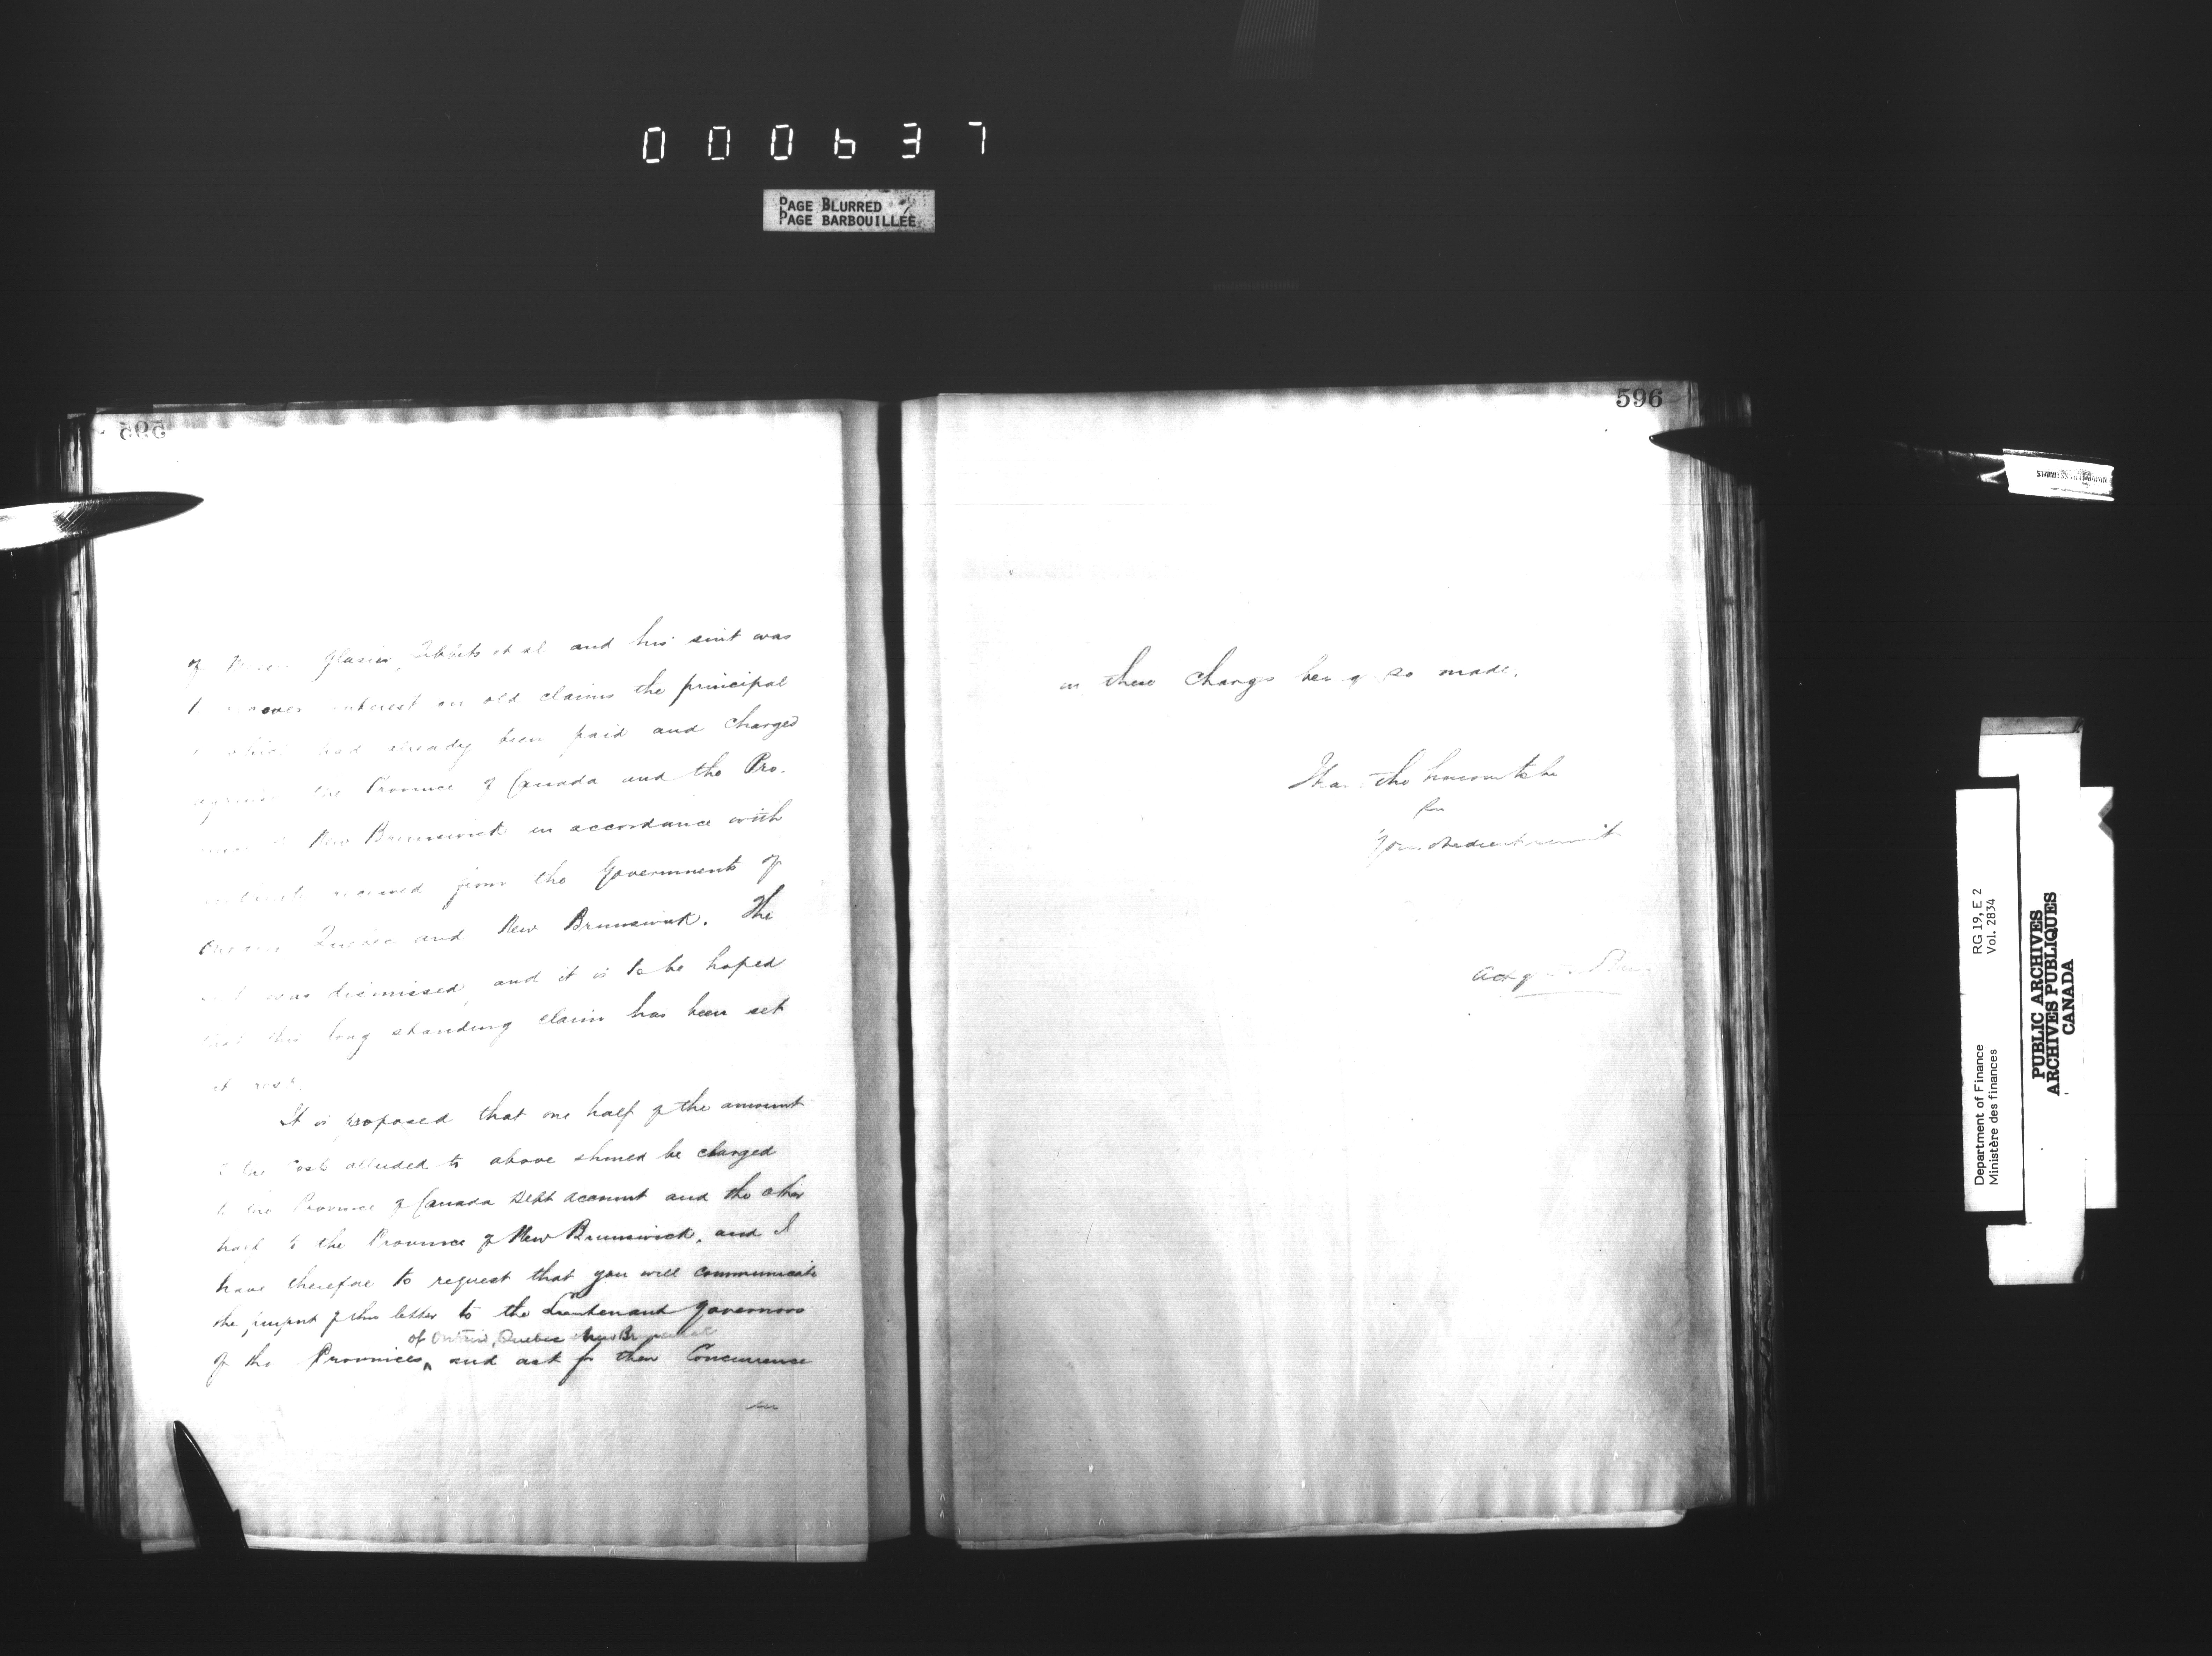 000637
PAGE BLURRED
PAGE BARBOUILLÉE
595
of Glasier, Tibbits et al and his suit was
interest on old claims the principal
which had already been paid and charged
against the Province of Canada and the Pro-
New Brunswick in accordance with
received from the Governments of
Ontario Quebec and New Brunswick. The
was dismissed, and it is to be hoped
that this long standing claim has been set
at rest.
It is proposed that one half of the amount
of the Costs alluded to above should be charged
to the Province of Canada Debt account and the other
half to the Province of New Brunswick, and I
have therefore to request that you will communicate
the purport of this letter to the Lieutenant Governors
of Ontario, Quebec & New Brunswick
of the Provinces, and ask for their Concurrence
in
596
in these charges being so made.
I have the honour to be
Sir
Your obedient servant
Actg
RG 19, E 2
Vol. 2834
Department of Finance
Ministère des finances
PUBLIC ARCHIVES
ARCHIVES PUBLIQUES
CANADA